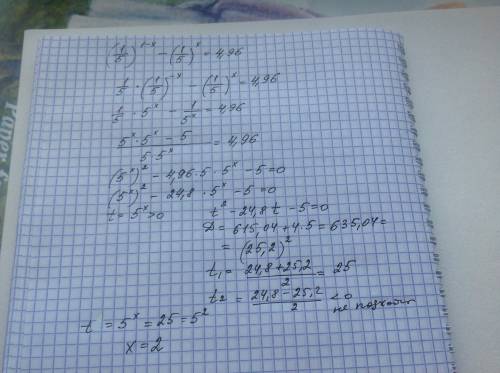 (1/5)^(1-x) - (1/5)^x = 4,96
1/5 · (1/5)^(-x) - (1/5)^x = 4,96
1/5 · 5^x - 1/5^x = 4,96
(5^x · 5^x - 5)/(5 · 5^x) = 4,96
(5^x)^2 - 4,96 · 5 · 5^x - 5 = 0
(5^x)^2 - 24,8 · 5^x - 5 = 0
t = 5^x > 0 t^2 - 24,8 t - 5 = 0
D = 615,04 + 4 · 5 = 635,04 =
= (25,2)^2
t₁ = (24,8 + 25,2)/2 = 25
t₂ = (24,8 - 25,2)/2 < 0
не
t = 5^x = 25 = 5^2
x = 2